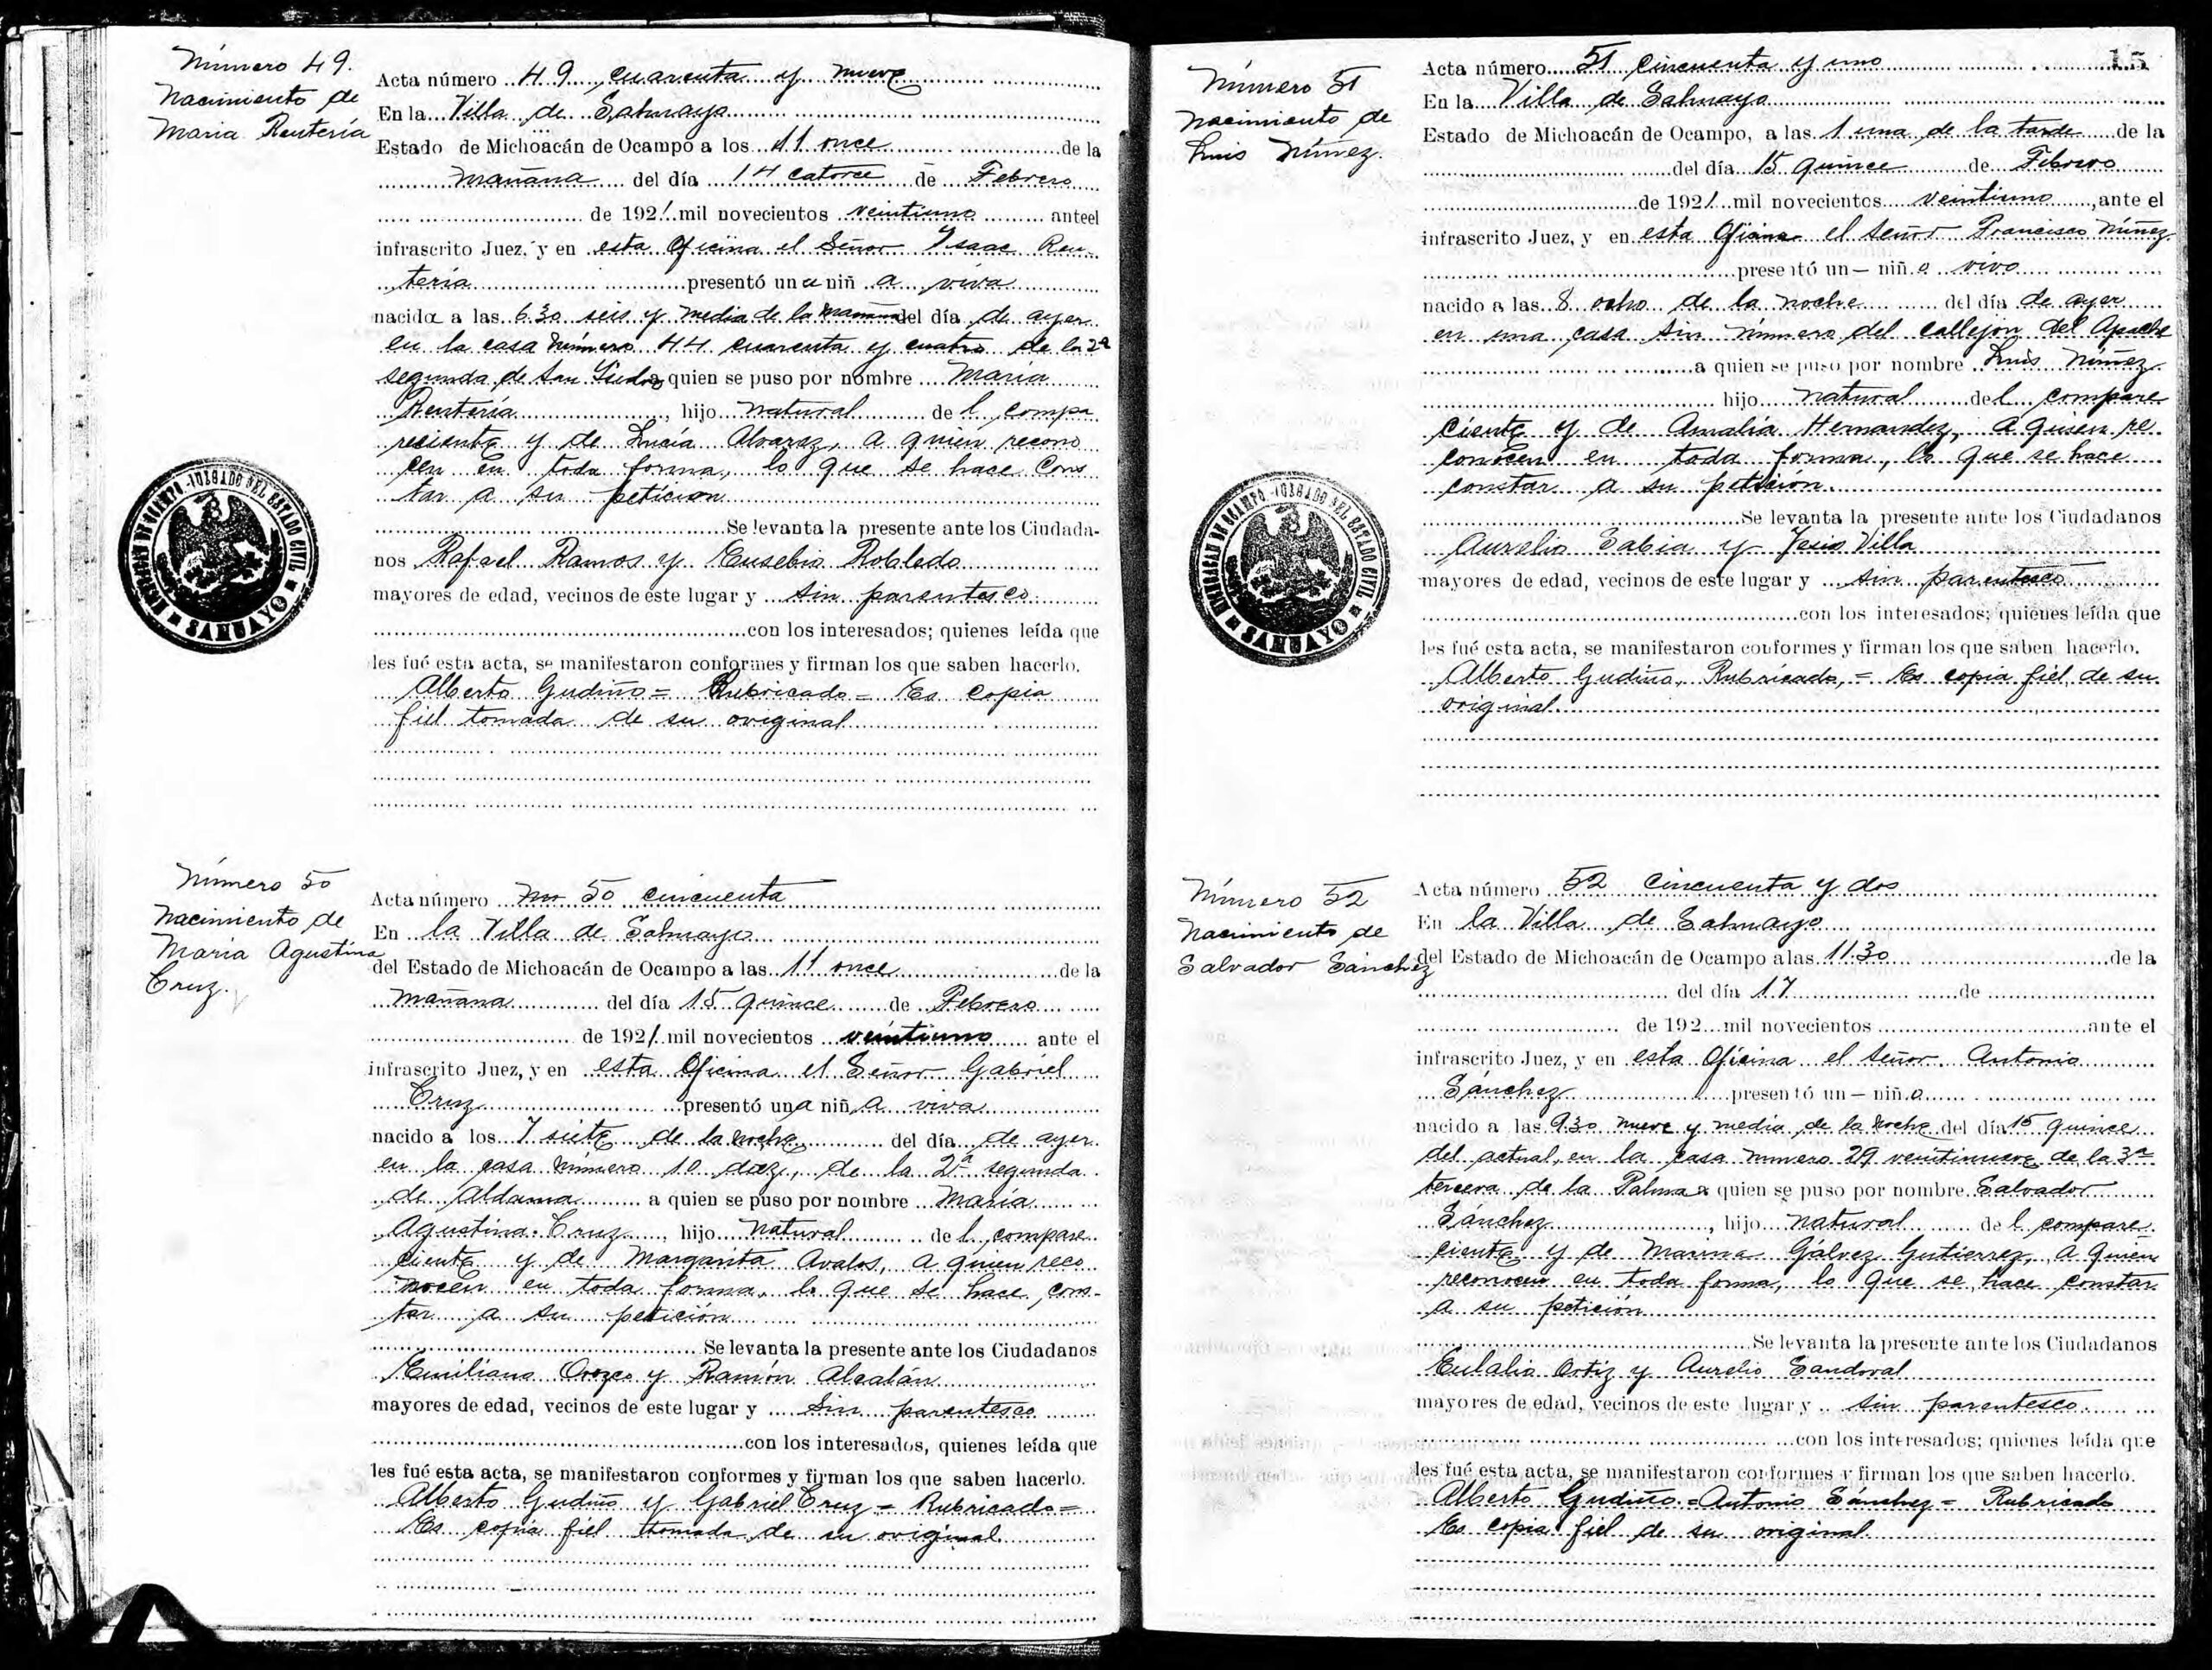 Número 49.
Nacimiento de
Maria Rentería
Acta número 49 cuarenta y nueve
En la Villa de Sahuayo
Estado de Michoacán de Ocampo a los 11 once de la
mañana del día 14 catorce de Febrero
de 1921 mil novecientos veintiuno anteel
infrascrito Juez, y en esta Oficina el Señor Ysaac Ren-
tería presentó una niña viva
nacida a las 6.30 seis y media de la mañana del día de ayer
en la casa número 44 cuarenta y cuatro de la 2ª
segunda de San a quien se puso por nombre María
Rentería, hijo natural del compa
reciente y de Lucía Alvarez, a quien recono
cen en toda forma, lo que se hace cons
tar a su petición
Se levanta la presente ante los Ciudada-
nos Rafael Ramos y Eusebio Robledo
mayores de edad, vecinos de este lugar y sin parentesco
con los interesados; quienes leída que
les fué esta acta, se manifestaron conformes y firman los que saben hacerlo.
Alberto Gudiño = Rubricado = Es copia
fiel tomada de su original
JUZGADO DEL ESTADO CIVIL
SAHUAYO
Número 50
Nacimiento de
Maria Agustina
Cruz.
Acta número 50 cincuenta
En la Villa de Sahuayo
del Estado de Michoacán de Ocampo a las 11 once de la
mañana del día 15 quince de Febrero
de 1921 mil novecientos veintiuno ante el
infrascrito Juez, y en esta Oficina el Señor Gabriel
Cruz presentó una niña viva
nacido a los 7 siete de la noche del día de ayer
en la casa número 10 diez, de la 2ª segunda
de Aldama a quien se puso por nombre María
Agustina Cruz, hijo natural del compare
ciente y de Margarita Avalos, a quien reco
nocen en toda forma, lo que se hace cons-
tar a su petición
Se levanta la presente ante los Ciudadanos
Emiliano Orozco y Ramón Alcalán
mayores de edad, vecinos de este lugar y sin parentesco
con los interesados, quienes leída que
les fué esta acta, se manifestaron conformes y firman los que saben hacerlo.
Alberto Gudiño y Gabriel Cruz = Rubricado =
Es copia fiel tomada de su original
15
Número 51
Nacimiento de
Luis Núñez.
Acta número 51 Cincuenta y uno
En la Villa de Sahuayo
Estado de Michoacán de Ocampo, a las 1 una de la tarde de la
del día 15 quince de Febrero
de 1921 mil novecientos veintiuno, ante el
infrascrito Juez, y en esta Oficina el señor Francisco Núñez
presentó un — niño vivo
nacido a las 8 ocho de la noche del día de ayer
en una casa sin número del callejón del Apache
a quien se puso por nombre Luis Núñez
hijo natural del compare
ciente y de Amalia Hernandez, a quien re
conocen en toda forma, lo que se hace
constar a su petición.
Se levanta la presente ante los Ciudadanos
Aurelio Tabia y Jesús Villa
mayores de edad, vecinos de este lugar y sin parentesco
con los interesados; quienes leída que
les fué esta acta, se manifestaron conformes y firman los que saben hacerlo.
Alberto Gudiño, Rubricado, = Es copia fiel de su
original.
JUZGADO DEL ESTADO CIVIL
SAHUAYO
Número 52
Nacimiento de
Salvador Sánchez
Acta número 52 Cincuenta y dos
En la Villa de Sahuayo
del Estado de Michoacán de Ocampo a las 11.30 de la
del día 17 de
de 192 mil novecientos ante el
infrascrito Juez, y en esta Oficina el señor Antonio
Sánchez presentó un — niño
nacido a las 9.30 nueve y media de la noche del día 15 quince
del actual, en la casa número 29 veintinueve de la 3ª
tercera de la Palma a quien se puso por nombre Salvador
Sánchez, hijo natural del compare
ciente y de Marina Gálvez Gutierrez, a quien
reconocen en toda forma, lo que se hace constar
a su petición
Se levanta la presente ante los Ciudadanos
Eulalio Ortiz y Aurelio Sandoval
mayores de edad, vecinos de este lugar y sin parentesco
con los interesados; quienes leída que
les fué esta acta, se manifestaron conformes y firman los que saben hacerlo.
Alberto Gudiño = Antonio Sánchez = Rubricado
Es copia fiel de su original.